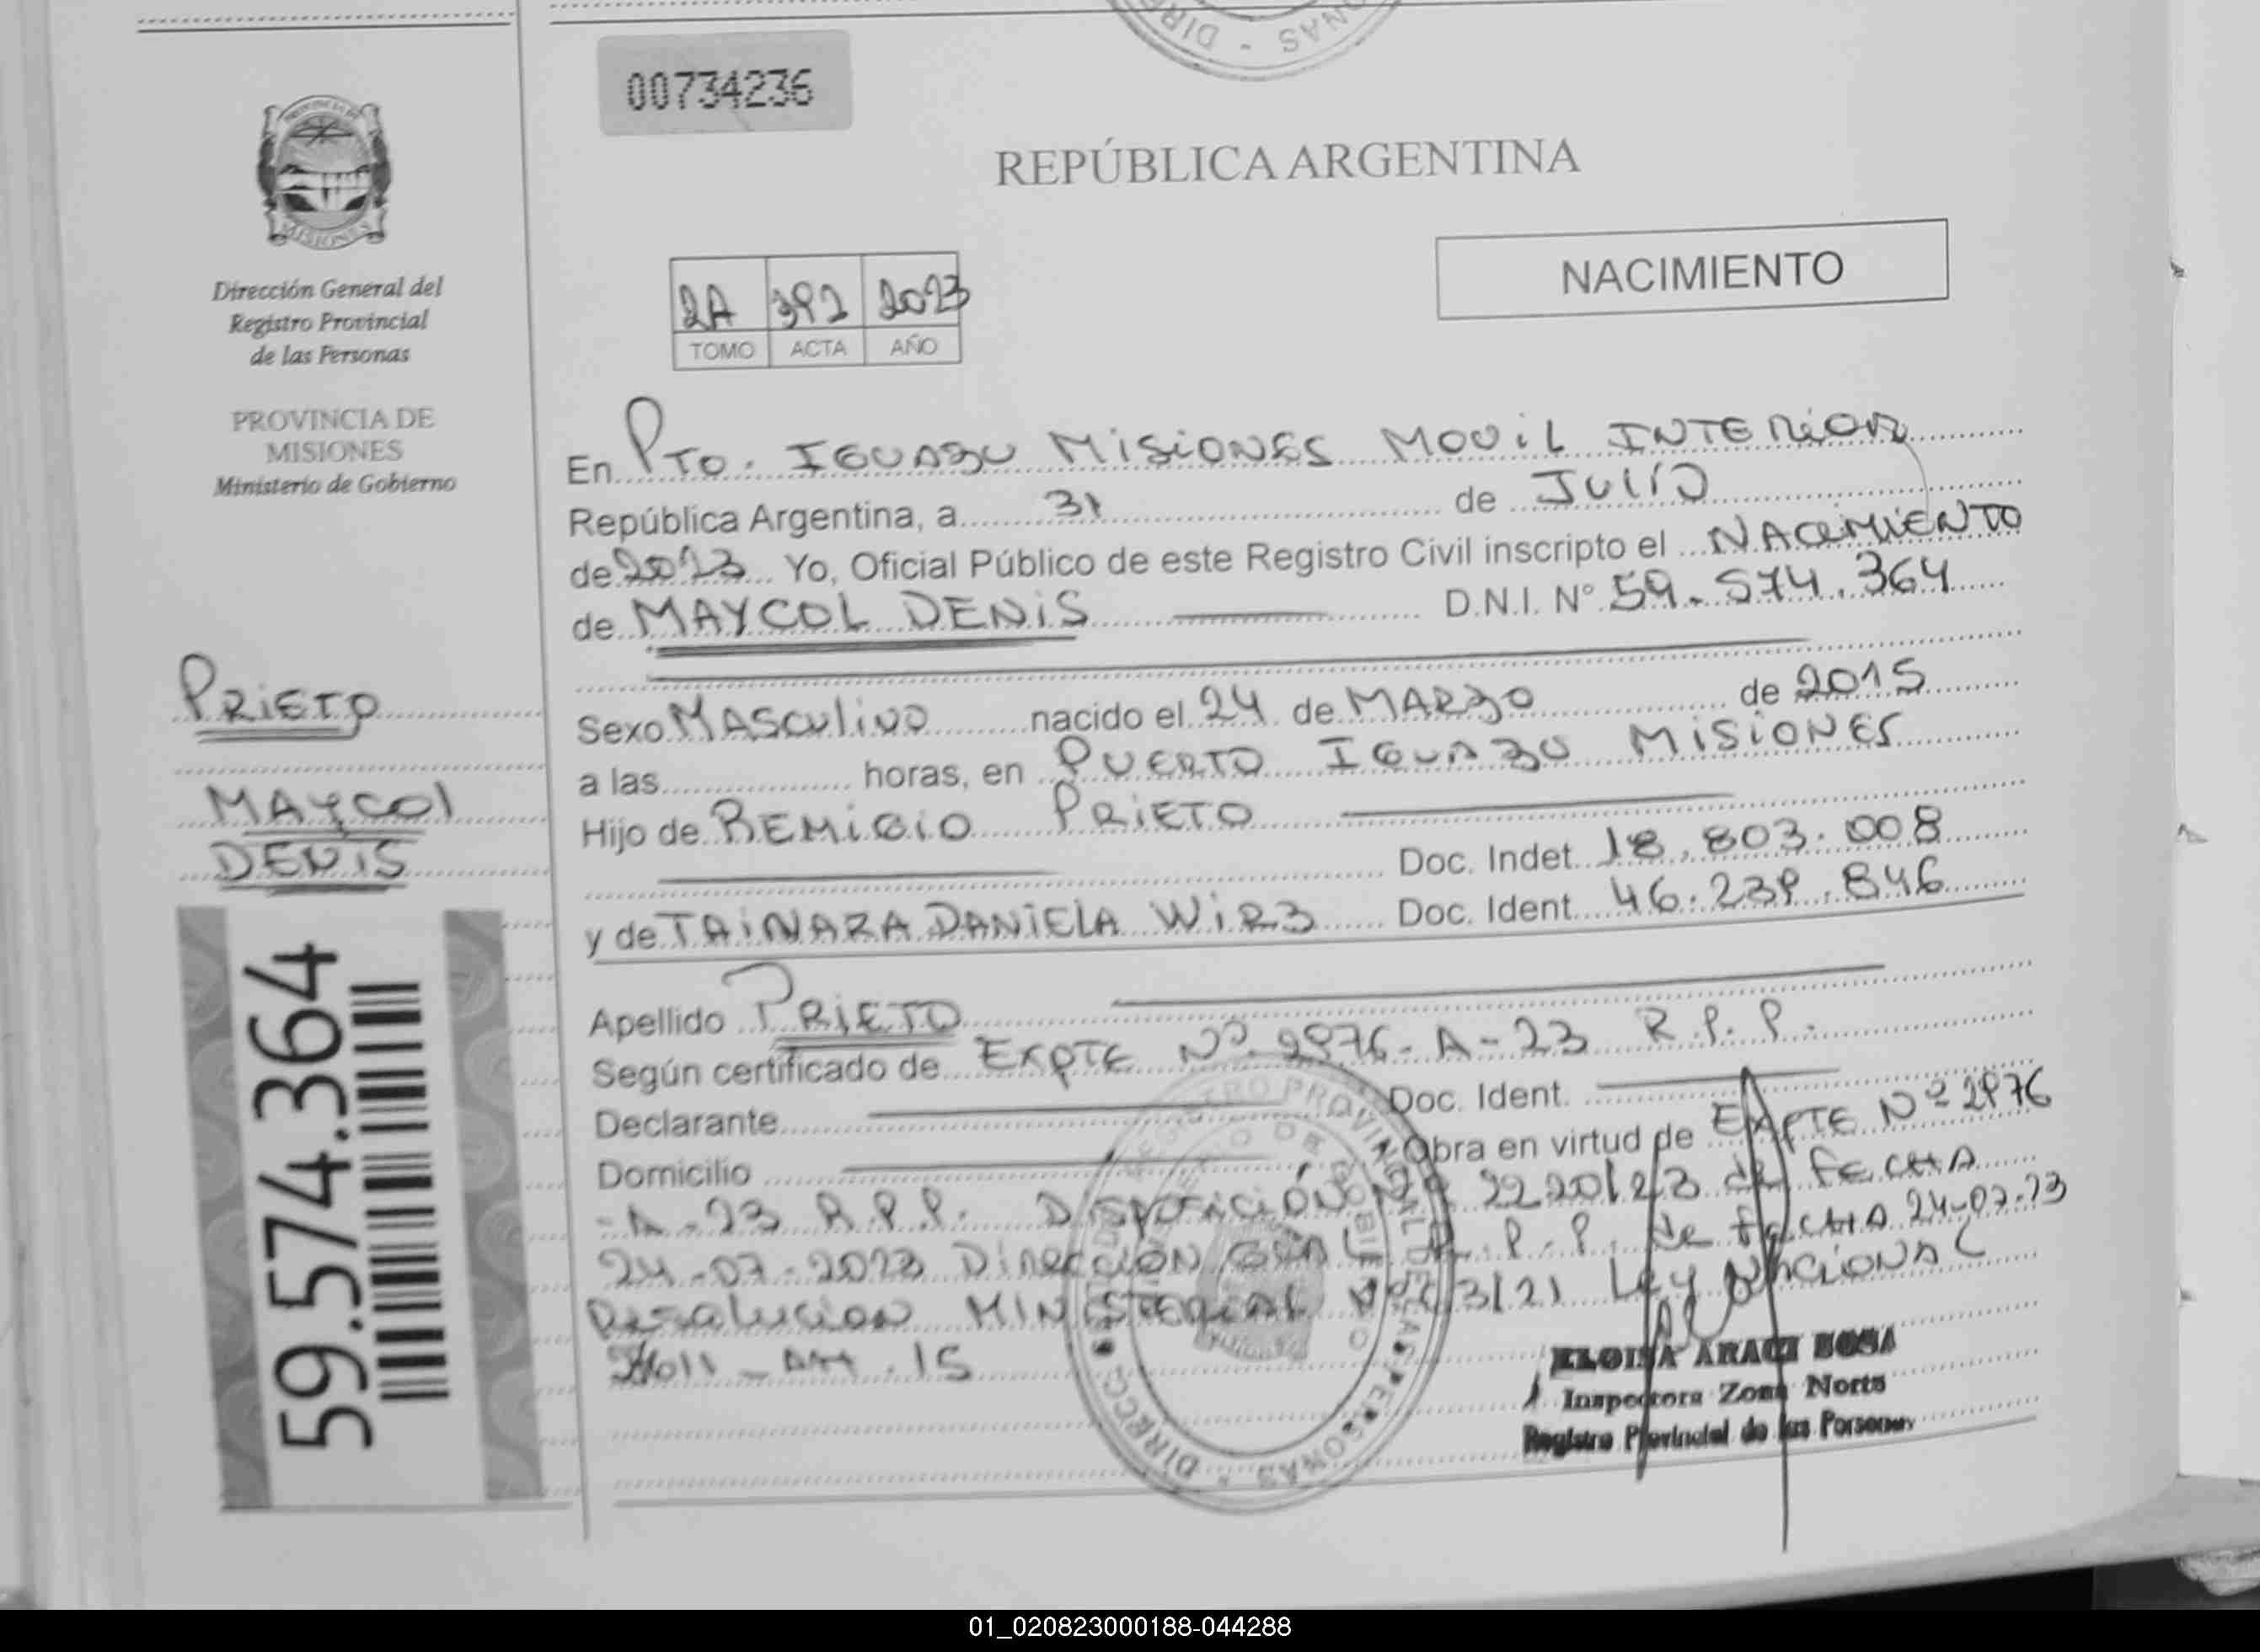 00734236
REPÚBLICA ARGENTINA
NACIMIENTO
2A 392 2023
TOMO ACTA AÑO
MISIONES
Dirección General del
Registro Provincial
de las Personas
PROVINCIA DE
MISIONES
Ministerio de Gobierno
En PTO. IGUAZU MISIONES MOVIL INTERIOR
República Argentina, a 31 de JULIO
de 2023 Yo, Oficial Público de este Registro Civil inscripto el NACIMIENTO
de MAYCOL DENIS D.N.I. N° 59.574.364
Sexo MASCULINO nacido el 24 de MARZO de 2015
a las horas, en PUERTO IGUAZU MISIONES
Hijo de REMIGIO PRIETO
Doc. Indet. 18.803.008
y de TAINARA DANIELA WIRZ Doc. Ident. 46.239.846
Apellido PRIETO
Según certificado de EXPTE Nº 2976-A-23 R.P.P.
Declarante Doc. Ident.
Domicilio Obra en virtud de EXPTE Nº 2976
-A-23 R.P.P. DISPOSICIÓN Nº 2220/23 de FECHA
24-07-2023 DIRECCIÓN GRAL R.P.P. de FECHA 24-07-23
Resolucion MINISTERIAL Ley NACIONAL
ART. 15
PRIETO
MAYCOL
DENIS
59.574.364
ELOISA ARACI SOSA
Inspectora Zona Norte
Registro Provincial de las Personas
01_020823000188-044288